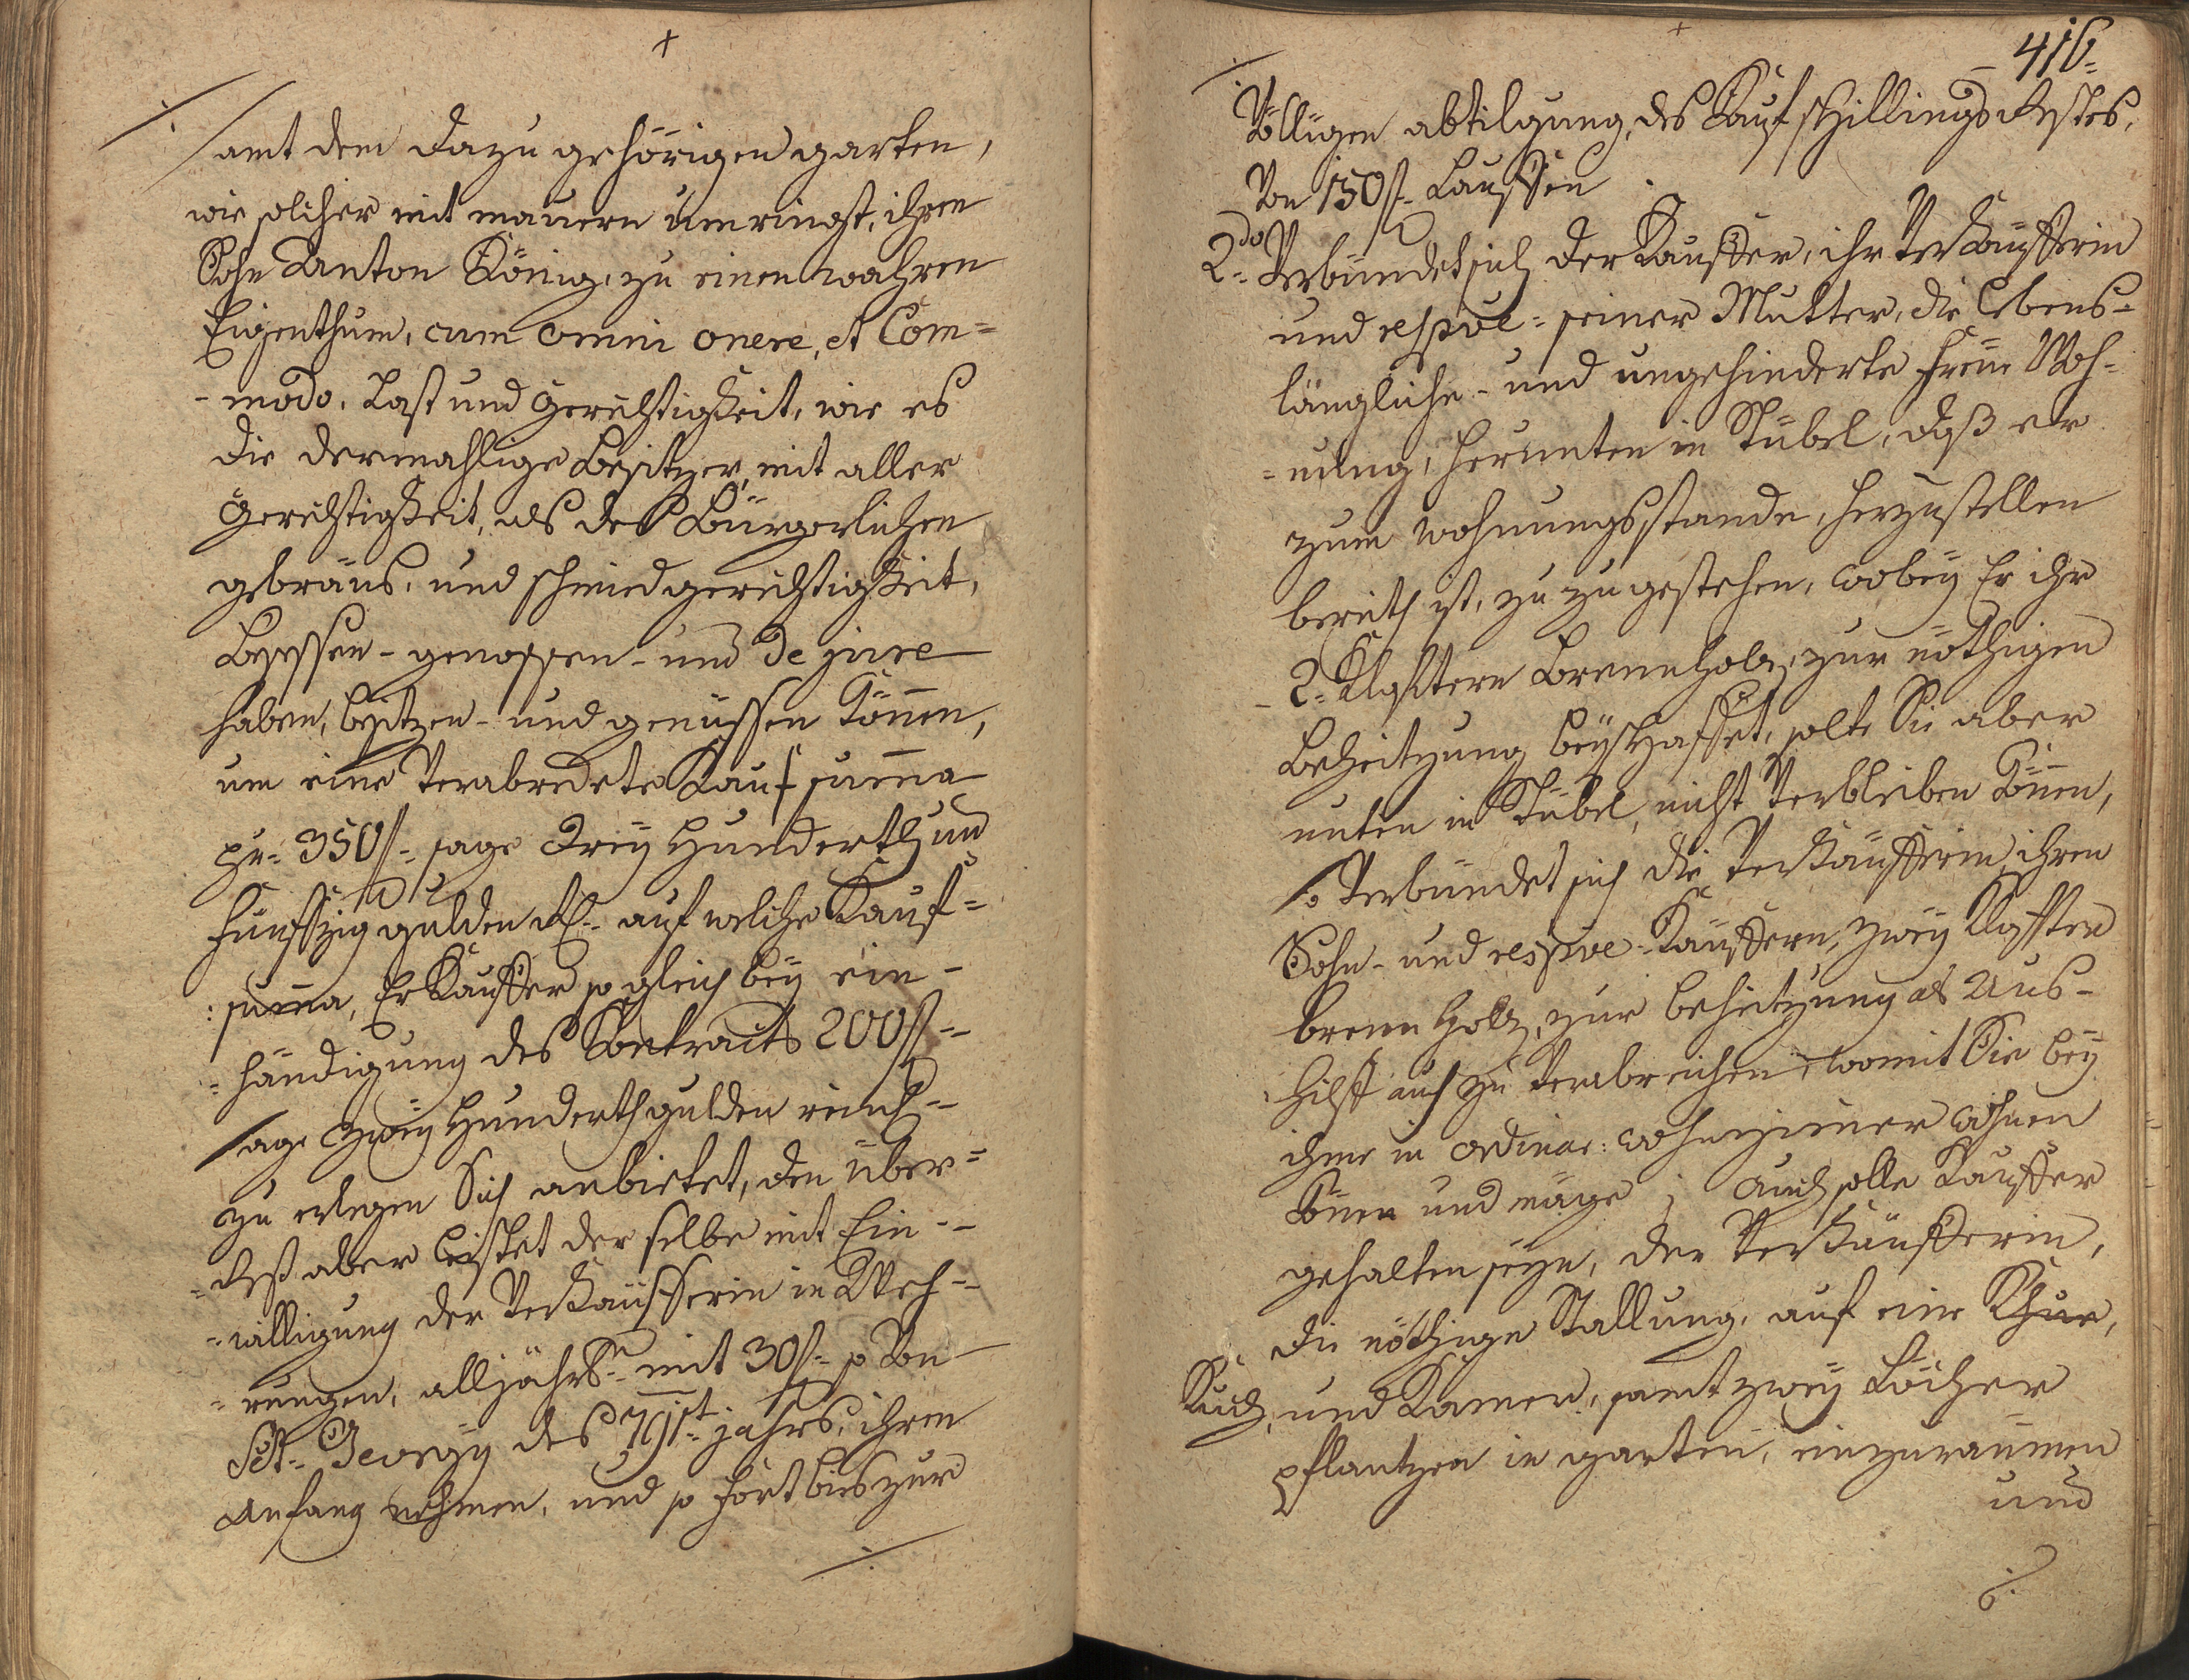 samt dem dazu gehörigen garten,
wie solcher mit mauern umringst, ihren
Sohn Anton König, zu einen wahren
Eigenthum, cum omni onere, et Com=
-modo, Last und Gerechtigkeit, wie es
die dermahlige Besitzer, mit aller
Gerechtigkeit, als des Bürgerlichen
gebräus, und schmied gerechtigkeit,
Besessen- genossen- und de jure
haben, besitzen- und genüssen können,
um eine verabredete Kauf suma
pr= 350 f= sage Drey Hunderth und
fünfzig gulden auf welche Kauf=
:suma, Er Kauffer so gleich bey ein-
=händigung des Contracts 200 f=
sage Zwey Hunderth gulden reinl=
zu erlegen Sich anbietet, den über=
=rest aber leistet der selbe mit Ein-
=willigung der Verkäufferin in Weh-
=rungen, alljährl: mit 30 f= so von
Sct. Georgy des 791st jahrs, ihren
Anfang nehmen, und so fort bis zur
416
Völligen abtilgung, des Kauf schillings Restes,
Von 150 f= Lauffen
2do Verbündet sich der Kauffer, ihr Verkäufferin
und respve= seiner Mutter, die lebens-
längliche- und ungehinderte freie Woh-
=nung, herunten in Stübel, daß er
zum wohnungsstande, herzustellen
bereith ist, zu zugestehen, wobey Er ihr
2= Klaftern Brennholz, zur nöthigen
Beheitzung beyschaffet, solte Sie aber
unten in Stübel, nicht verbleiben können,
so verbündet sich die Verkäufferin ihren
Sohn- und respve- Kauffern, zwey Klaffter
brenn Holz, zur beheitzung als Aus-
hilff auch zu verabreichen, womit Sie bey
ihme in ordinar: wohnzimer wohnen
könen und möge; Auch solle Kauffer
gehalten seyn, der Verkäufferin,
die nöthige Stallung, auf eine Khue,
Kuch, und Kamer, samt zwey Löcher
pflantzen in garten, einzuraumen
und